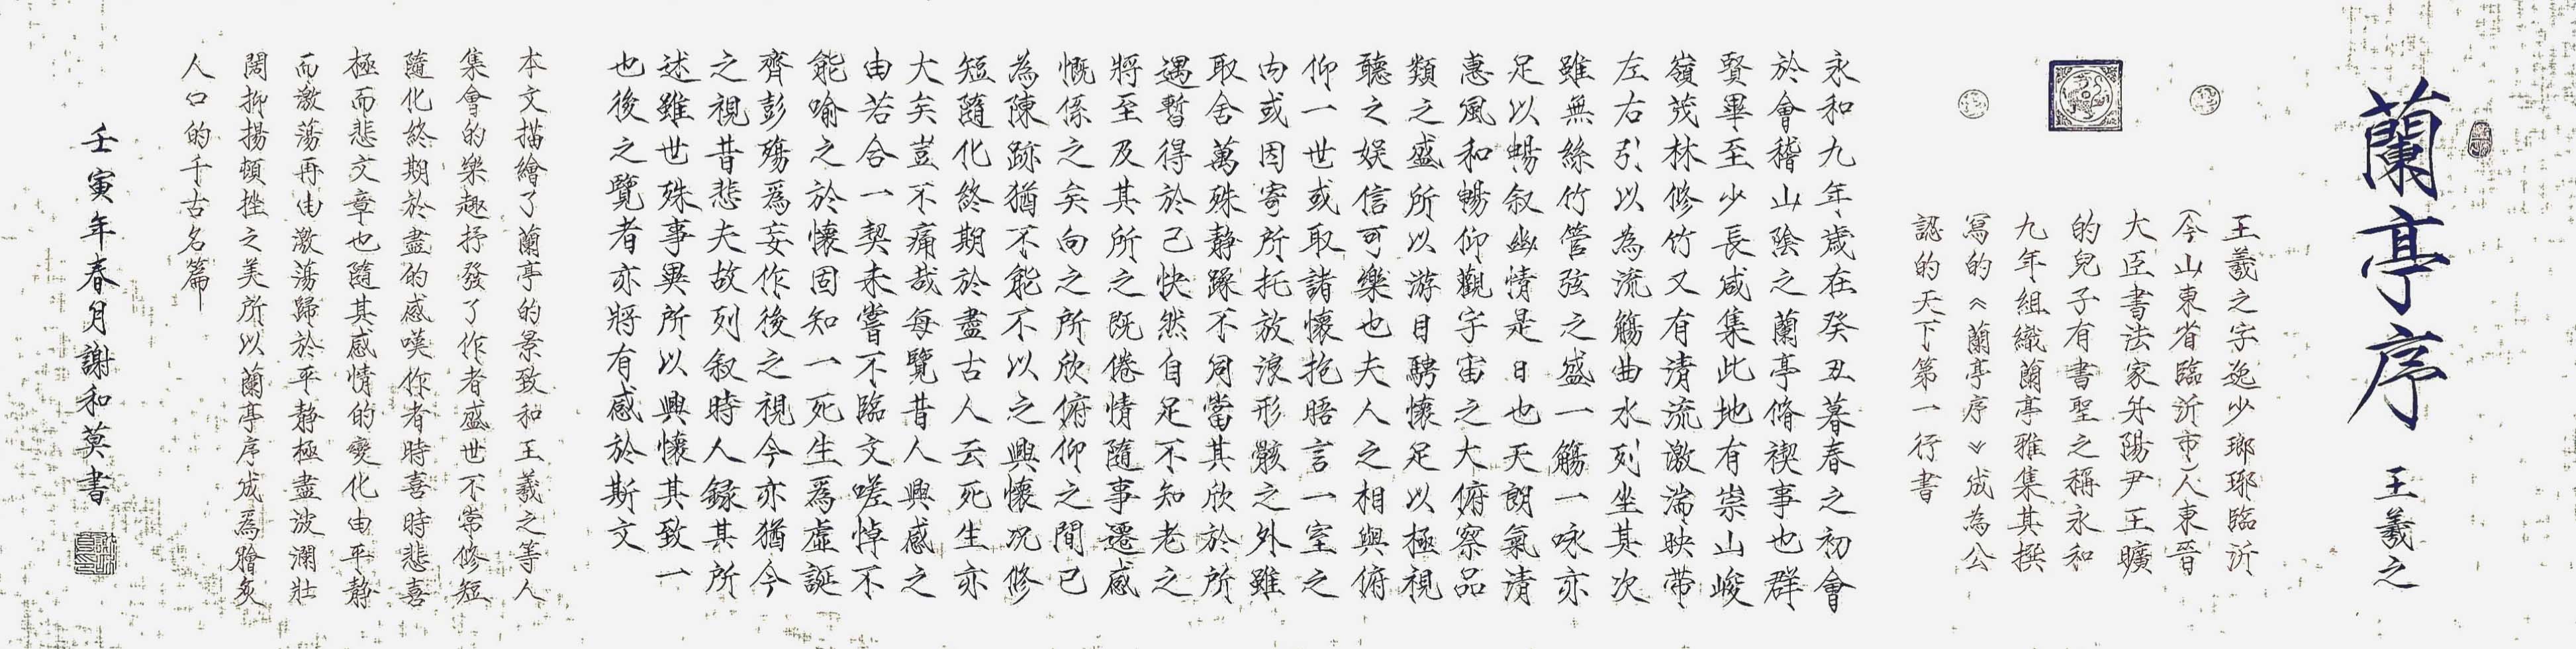 蘭亭序
王羲之
王羲之字逸少瑯琊臨沂
(今山東省臨沂市)人東晉
大臣書法家丹陽尹王曠
的兒子有書聖之稱永和
九年組織蘭亭雅集其撰
寫的《蘭亭序》成為公
認的天下第一行書
永和九年歲在癸丑暮春之初會
於會稽山陰之蘭亭脩禊事也群
賢畢至少長咸集此地有崇山峻
嶺茂林修竹又有清流激湍映帶
左右引以為流觴曲水列坐其次
雖無絲竹管弦之盛一觴一咏亦
足以暢叙幽情是日也天朗氣清
惠風和暢仰觀宇宙之大俯察品
類之盛所以游目騁懷足以極視
聽之娱信可樂也夫人之相與俯
仰一世或取諸懷抱晤言一室之
内或因寄所托放浪形骸之外雖
取舍萬殊静躁不同當其欣於所
遇暫得於己快然自足不知老之
將至及其所之既倦情隨事遷感
慨係之矣向之所欣俯仰之間已
為陳跡猶不能不以之興懷况修
短隨化終期於盡古人云死生亦
大矣豈不痛哉每覽昔人興感之
由若合一契未嘗不臨文嗟悼不
能喻之於懷固知一死生爲虛誕
齊彭殤爲妄作後之視今亦猶今
之視昔悲夫故列叙時人録其所
述雖世殊事異所以興懷其致一
也後之覽者亦將有感於斯文
本文描繪了蘭亭的景致和王羲之等人
集會的樂趣抒發了作者盛世不常修短
隨化終期於盡的感嘆作者時喜時悲喜
極而悲文章也隨其感情的變化由平静
而激蕩再由激蕩歸於平静極盡波瀾壯
闊抑揚頓挫之美所以蘭亭序成爲膾炙
人口的千古名篇
壬寅年春月謝和莫書